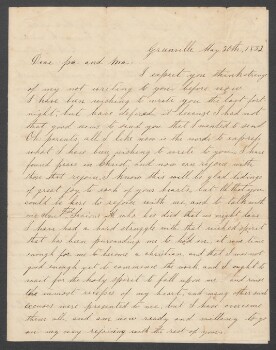 Granville May 20th, 1832
Dear Pa. and Ma.
I expect you think strange
of my not writing to you before now
I have been wishing to write you the last fort
night, but have defered it because I had not
that good news to send you that I wanted to send
Oh parents all I lack now is the words to express
what I have been wishing to write to you. I have
found peace in Christ, and now can rejoice with
those that rejoice, I know this will be glad tidings
of great joy to each of your hearts, but Oh that you
could be here to rejoice with me and to talk with
me of the dear Saviour who has died that we might live
I have had a hard struggle with that wicked spirit
that has been persuading me to hold on, it was time
enough for me to become a christian, and that I was not
good enough yet to commence the work and I ought to
wait for the holy Spirit to fall upon me and
the inmost recesses of my heart, and many other such
excuses were presented to me but I have overcome
them all and am now ready and willing to go
on my way rejoicing with the rest of you